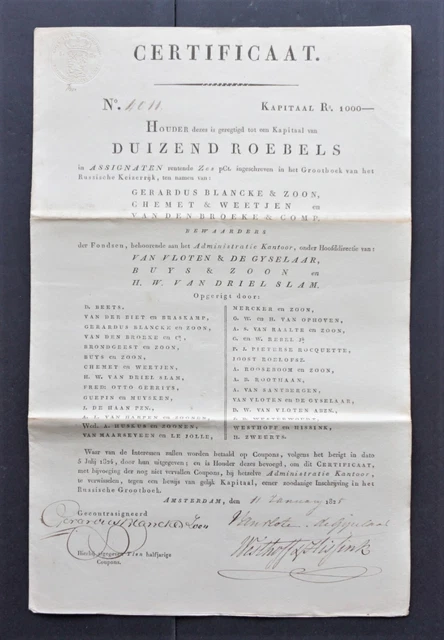 CERTIFICAAT.
Nº. KAPITAAL Rs. 1000—
HOUDER dezes is geregtigd tot een Kapitaal van
DUIZEND ROEBELS
in ASSIGNATEN rentende Zes pCt. ingeschreven in het Grootboek van het
Russische Keizerrijk, ten namen van:
GERARDUS BLANCKE & ZOON,
CHEMET & WEETJEN en
VAN DEN BROEKE & COMP.
BEWAARDERS
der Fondsen, behoorende aan het Administratie Kantoor, onder Hoofddirectie van:
VAN VLOTEN & DE GYSELAAR,
BUYS & ZOON en
H. W. VAN DRIEL SLAM.
Opgerigt door:
D. BEETS,
VAN DER BIET en BRASKAMP,
GERARDUS BLANCKE en ZOON,
VAN DEN BROEKE en
BRONDGEEST en ZOON,
BUYS en ZOON,
CHEMET en WEETJEN,
H. W. VAN DRIEL SLAM,
FREDk OTTO GERRITS,
GUEPIN en MUYSKEN,
J. DE HAAN PZN.
A. L. VAN HARPEN en ZOONEN
Wed. A. en ZOONEN
VAN MAARSEVEEN en LE JOLLE,
MERCKEN en ZOON,
G. W. en H. VAN OPHOVEN,
A. S. VAN RAALTE en ZOON,
G. en W. REBEL
P. J. PIETERSE ROCQUETTE,
JOOST ROELOFSZ.
A. ROOSEBOOM en ZOON,
A. D. ROOTHAAN,
A. VAN SANTBERGEN,
VAN VLOTEN en DE GYSELAAR,
D. W. VAN VLOTEN ABZN.
WESTHOFF en HISSINK,
H. ZWEERTS.
Waar van de Interessen zullen worden betaald op Coupons, volgens het berigt in dato
5 Julij 1824, door hun uitgegeven; en is Houder dezes bevoegd, om dit CERTIFICAAT,
met bijvoeging der nog niet vervallen Coupons, bij hetzelve Administratie Kantoor,
te verwisselen, tegen een bewijs van gelijk Kapitaal, eener zoodanige Inschrijving in het
Russische Grootboek.
AMSTERDAM, den 11 January
Gecontrasigneerd
Gerardus Blancke & Zoon
Van Vloten & de Gijselaar
Westhoff & Hissink
Hierbij uitgegeven Tien halfjarige
Coupons.